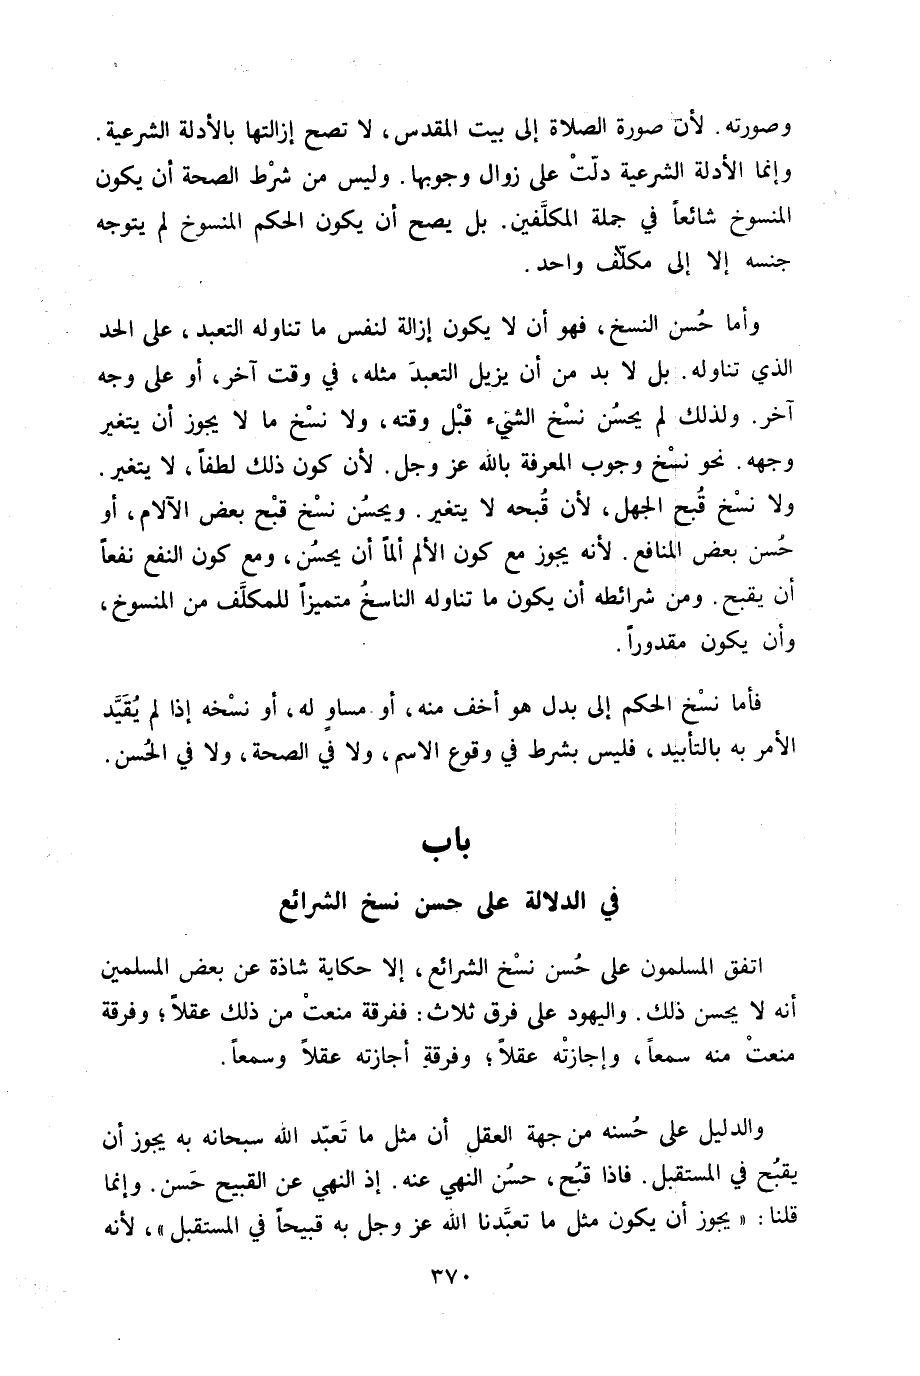 وصورته. لأن صورة الصلاة إلى بيت المقدس، لا تصح إزالتها بالأدلة الشرعية.
وإنما الأدلة الشرعية دلّتْ على زوال وجوبها. وليس من شرْط الصحة أن يكون
المنسوخ شائعاً في جملة المكلَّفين. بل يصح أن يكون الحكم المنسوخ لم يتوجه
جنسه إلا إلى مكلّف واحد.
وأما حُسن النسخ، فهو أن لا يكون إزالة لنفس ما تناوله التعبد، على الحد
الذي تناوله. بل لا بد من أن يزيل التعبدَ مثله، في وقت آخر، أو على وجه
آخر. ولذلك لم يحسُن نسْخ الشيء قبْل وقته، ولا نسْخ ما لا يجوز أن يتغير
وجهه. نحو نسْخ وجوب المعرفة بالله عز وجل. لأن كون ذلك لطفاً، لا يتغير.
ولا نسْخ قُبح الجهل، لأن قُبحه لا يتغير. ويحسُن نسْخ قبْح بعض الآلام، أو
حُسن بعض المنافع. لأنه يجوز مع كون الألم ألماً أن يحسُن، ومع كون النفع نفعاً
أن يقبح. ومن شرائطه أن يكون ما تناوله الناسخُ متميزاً للمكلَّف من المنسوخ،
وأن يكون مقدوراً.
فأما نسْخ الحكم إلى بدل هو أخف منه، أو مساوٍ له، أو نسْخه إذا لم يُقَيَّد
الأمر به بالتأبيد، فليس بشرط في وقوع الاسم، ولا في الصحة، ولا في الحُسن.
باب
في الدلالة على حسن نسخ الشرائع
اتفق المسلمون على حُسن نسْخ الشرائع، إلا حكاية شاذة عن بعض المسلمين
أنه لا يحسن ذلك. واليهود على فرق ثلاث: ففرقة منعتْ من ذلك عقلاً؛ وفرقة
منعتْ منه سمعاً، وإجازتْه عقلاً؛ وفرقةٍ أجازته عقلاً وسمعاً.
والدليل على حُسنه من جهة العقل أن مثل ما تَعبّد الله سبحانه به يجوز أن
يقبُح في المستقبل. فاذا قبُح، حسُن النهي عنه. إذ النهي عن القبيح حَسن. وإنما
قلنا: « يجوز أن يكون مثل ما تعبَّدنا الله عز وجل به قبيحاً في المستقبل »، لأنه
٣٧٠